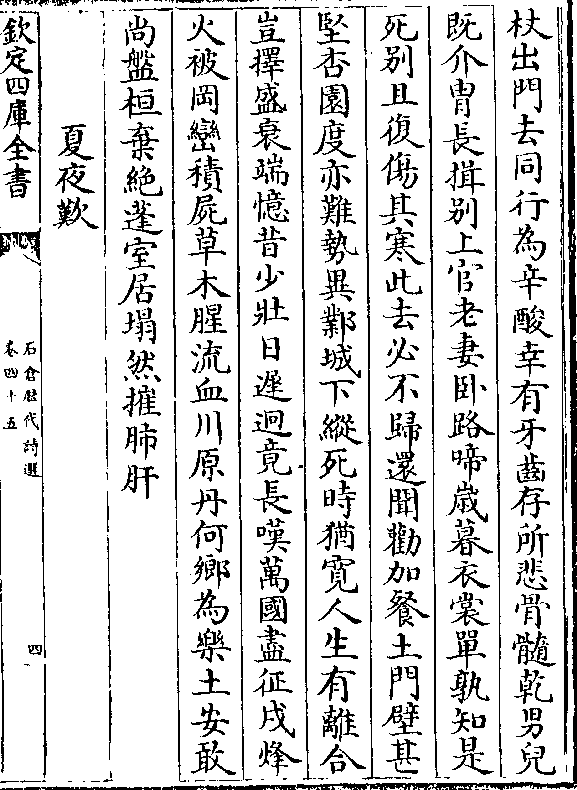 杖出門去同行為辛酸幸有牙齒存所悲骨髓乾男兒
既介胄長揖别上官老妻卧路啼歲暮衣裳單孰知是
死别且復傷其寒此去必不歸還聞勸加餐土門壁甚
堅杏園度亦難勢異鄴城下縱死時猶寛人生有離合
豈擇盛衰端憶昔少壯日遲迴竟長嘆萬國盡征戍烽
火被岡巒積屍草木腥流血川原丹何鄉為樂土安敢
尚盤桓棄絶蓬室居塌然摧肺肝
夏夜歎
欽定四庫全書
石倉歷代詩選
卷四十五
四